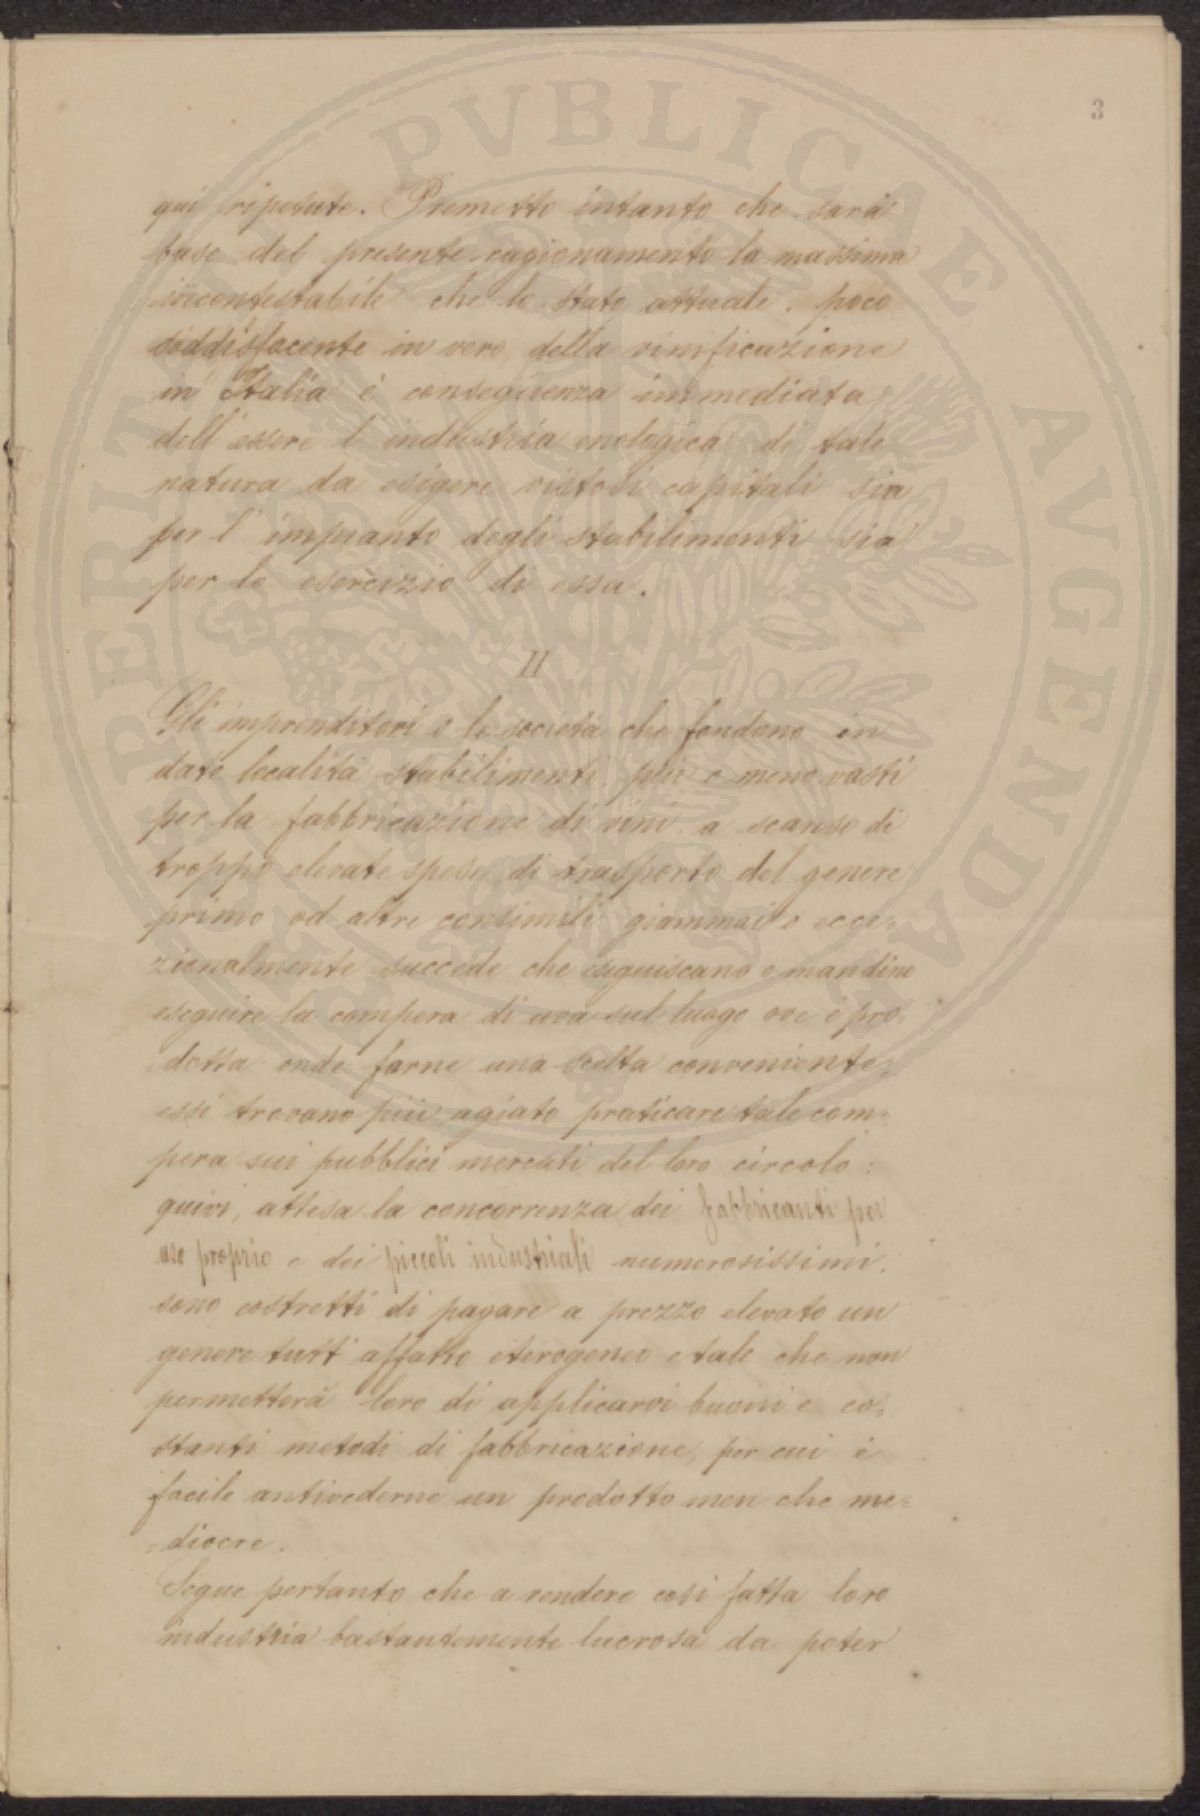 3
qui ripetute. Premetto intanto che sarà
base del presente ragionamento la massima
incontestabile che lo stato attuale, poco
soddisfacente in vero, della vinificazione
in Italia è conseguenza immediata
dell'essere l'industria enologica di tale
natura da esigere vistosi capitali sia
per l'impianto degli stabilimenti sia
per lo esercizio di essa.
II
Gli imprenditori o le società che fondano in
date località stabilimenti più o meno vasti
per la fabbricazione di vini a scanso di
troppo elevate spese di trasporto del genere
primo od altre consimili giammai o ecce=
zionalmente succede che eseguiscano o mandino
eseguire la compera di uva sul luogo ove è pro=
dotta onde farne una scelta conveniente;
essi trovano più agiato praticare tale com=
pera sui pubblici mercati del loro circolo:
quivi, attesa la concorrenza dei fabbricanti per
uso proprio e dei piccoli industriali numerosissimi,
sono costretti di pagare a prezzo elevato un
genere tutt'affatto eterogeneo e tale che non
permetterà loro di applicarvi buoni e co=
stanti metodi di fabbricazione, per cui è
facile antivederne un prodotto men che me=
=diocre.
Segue pertanto che a rendere così fatta loro
industria bastantemente lucrosa da poter
PVBLICAE AVGENDAE